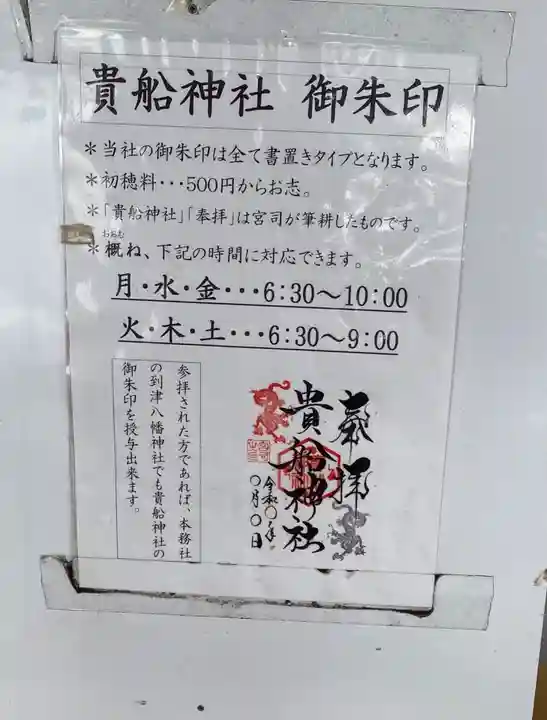 貴船神社 御朱印
＊当社の御朱印は全て書置きタイプとなります。
＊初穂料・・・500円からお志。
＊「貴船神社」「奉拝」は宮司が筆耕したものです。
おおむ
＊概ね、下記の時間に対応できます。
月・水・金・・・6:30～10:00
火・木・土・・・6:30～9:00
参拝された方であれば、本務社
の到津八幡神社でも貴船神社の
御朱印を授与出来ます。
奉拝
貴船神社
令和〇年
〇月〇日